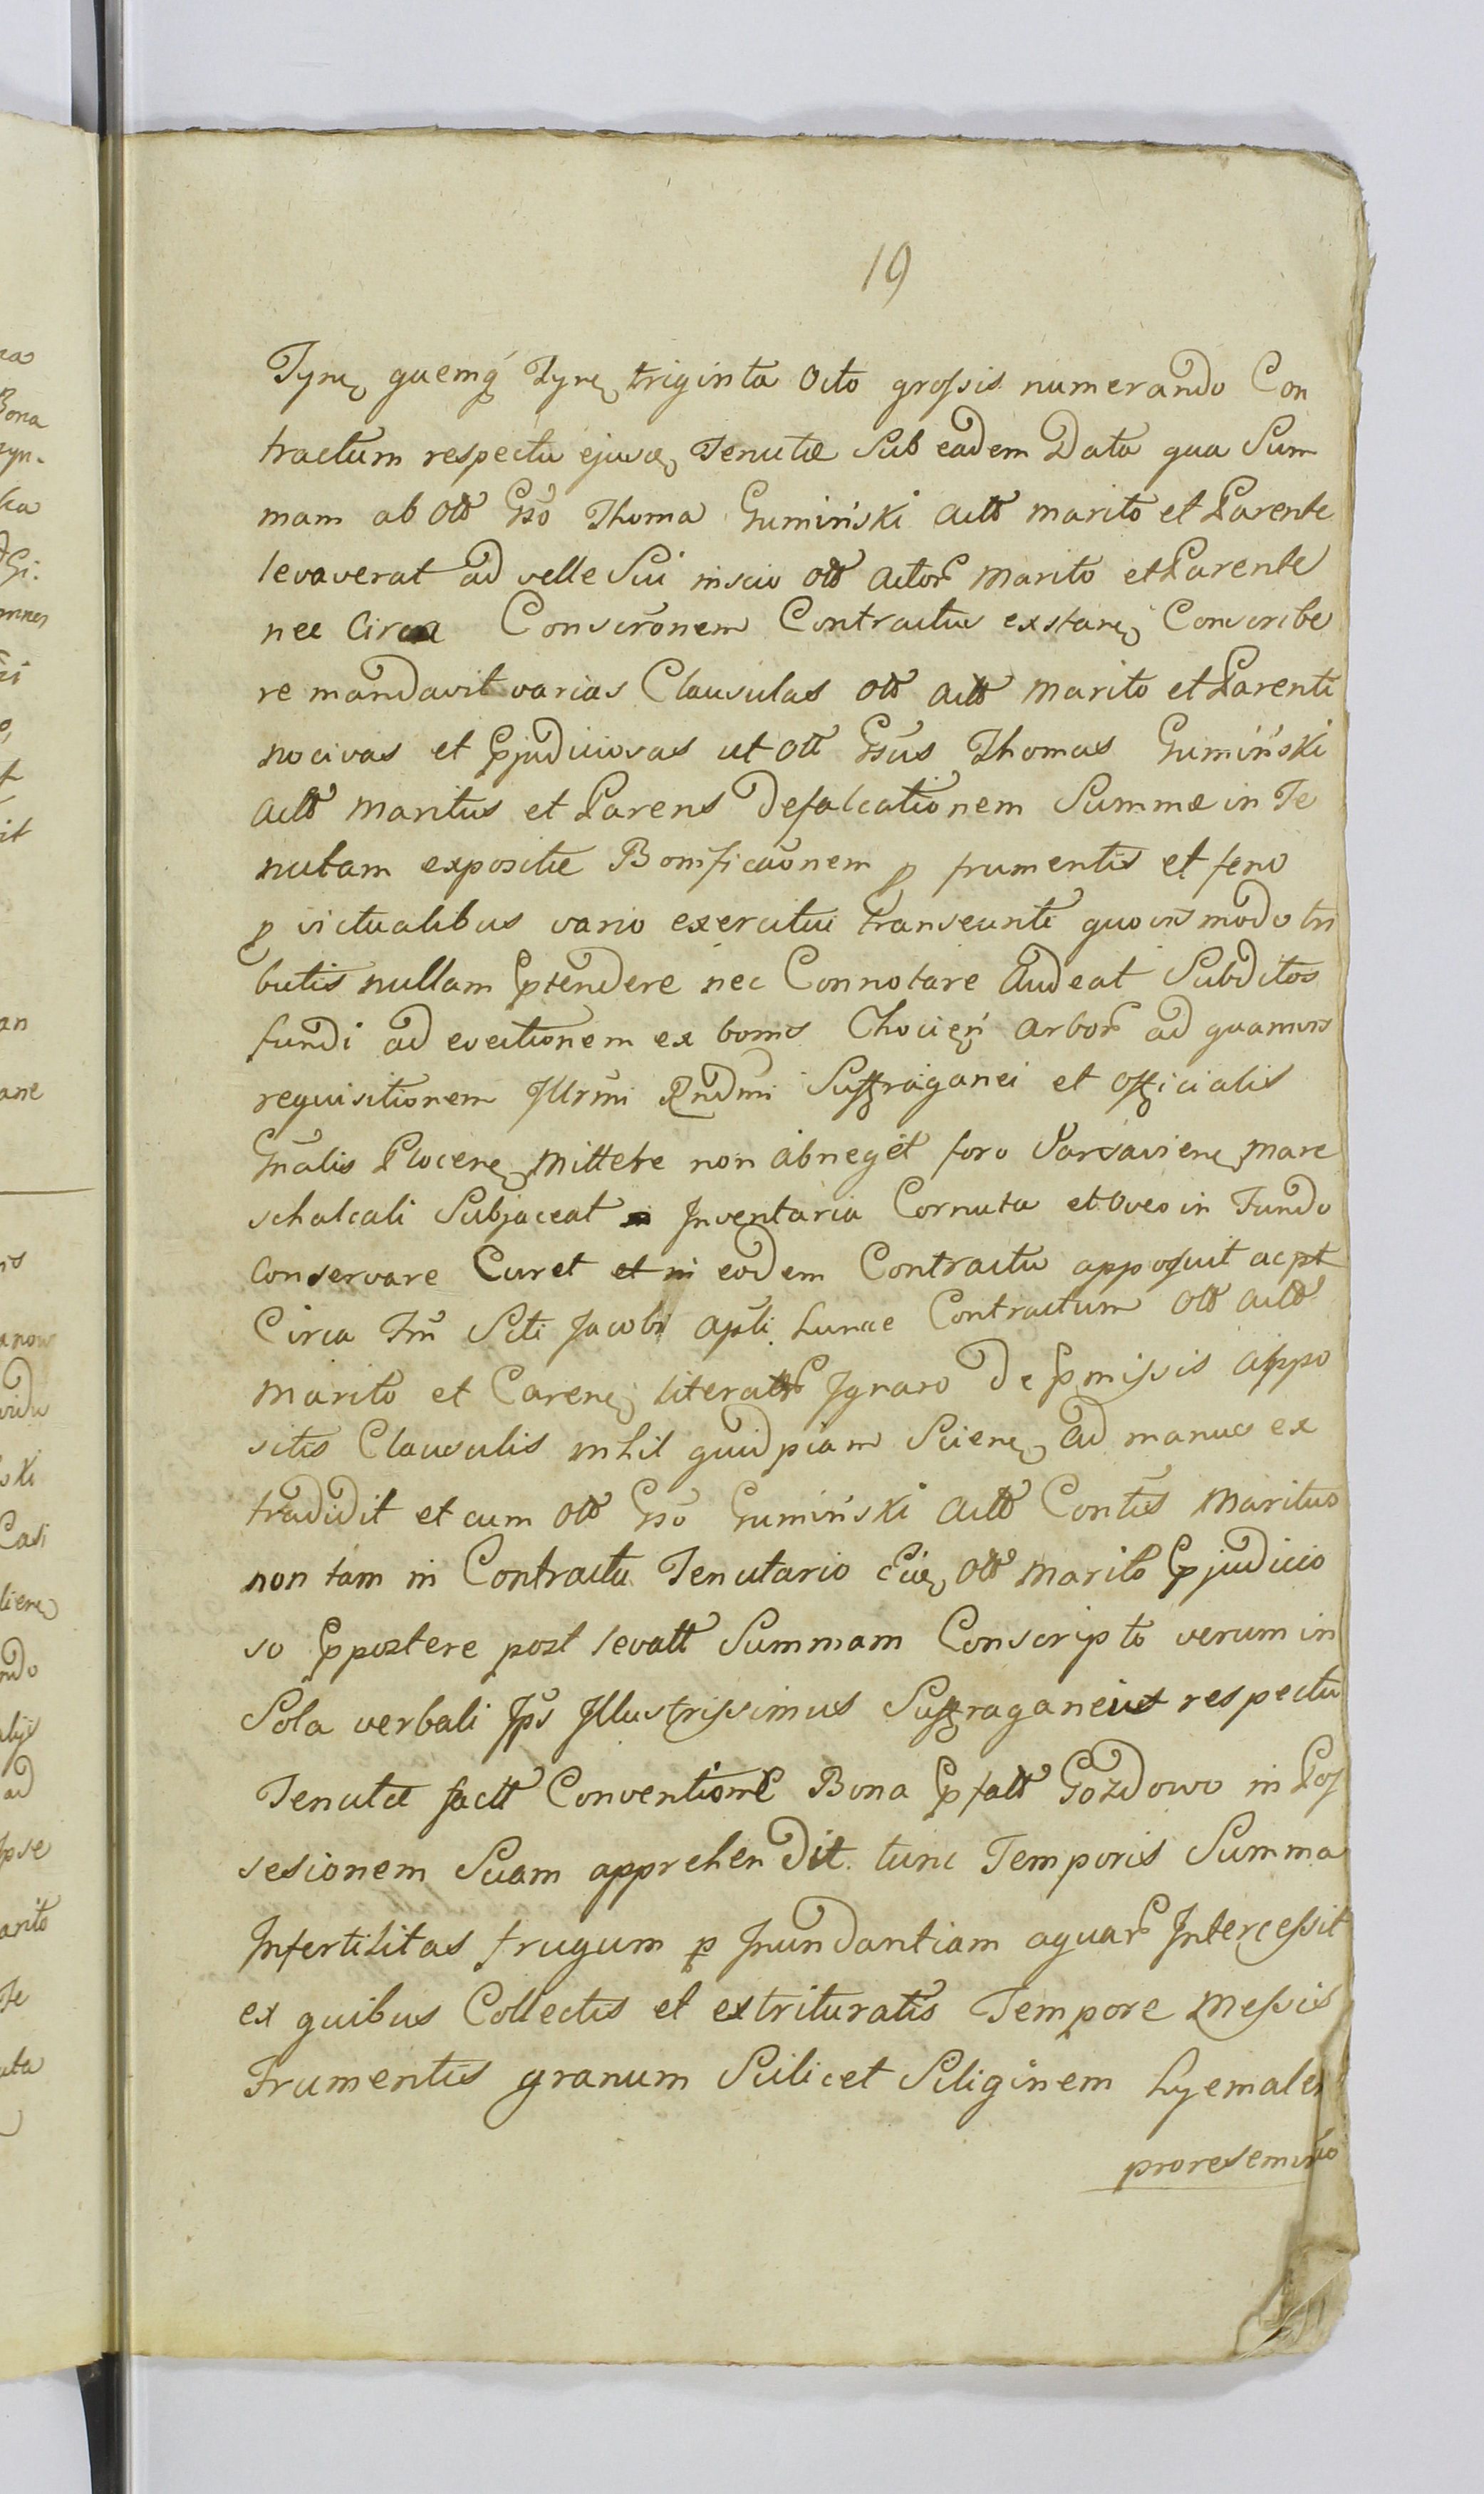 19
Tyne quemq Tyne triginta Octo grossis numerando Con
tractum respectu ejusd Tenutæ Sub eadem Data qua Sum
mam ab Olt Gso Thoma Gumiński actt marito et Parente
levaverat ad velle Sui inscio Olt Actor marito et Parente
nec Circa Conscronem Contractus exstan Conscribe
re mandavit varias Clausulas Olt actt marito et Parenti
nocivas et Pjudiciosas ut Olt Gsus Thomas Gumiński
actt maritus et Parens Defalcationem Summæ in Te
nutam expositæ Bonificaonem p frumentis et feno
p victualibus vario exercitui transeunti quovis modo tri
butis nullam Ptendere nec Connotare Audeat Subditos
fundi ad evectionem ex bonis Chocień arbor ad quamvis
requisitionem Illrmi Rndmi Suffraganei et Officialis
Gnalis Plocen Mittere non abneget foro Varsavien mare
schalcali Subjaceat Inventaria Cornuta et Oves in Fundo
Conservare Curet et in eodem Contractu apposuit ac pt
Circa Fm Scti Jacobi Apli hunce Contractum Olt actt
marito et Paren literatr Ignaro De Pmissis appo
sitis Clausulis nihil quidpiam Scien Ad manus ex
tradidit et cum Olt Gso Gumiński actt Contis Maritus
non tam in Contractu Tenutario Olt marito Pjudicio
so Ppostere post levatt Summam Conscripto verum in
Sola verbali Ips Illustrissimus Suffraganeius respectu
Tenutæ factt Conventione Bona Pfatt Gozdowo in Pos
sesionem Suam apprehendit tunc Temporis Summa
Infertilitas frugum p Inundantiam aquar Intercessit
ex quibus Collectis et extrituratis Tempore Messis
Frumentis granum Scilicet Siliginem hyemalem
proreseminio